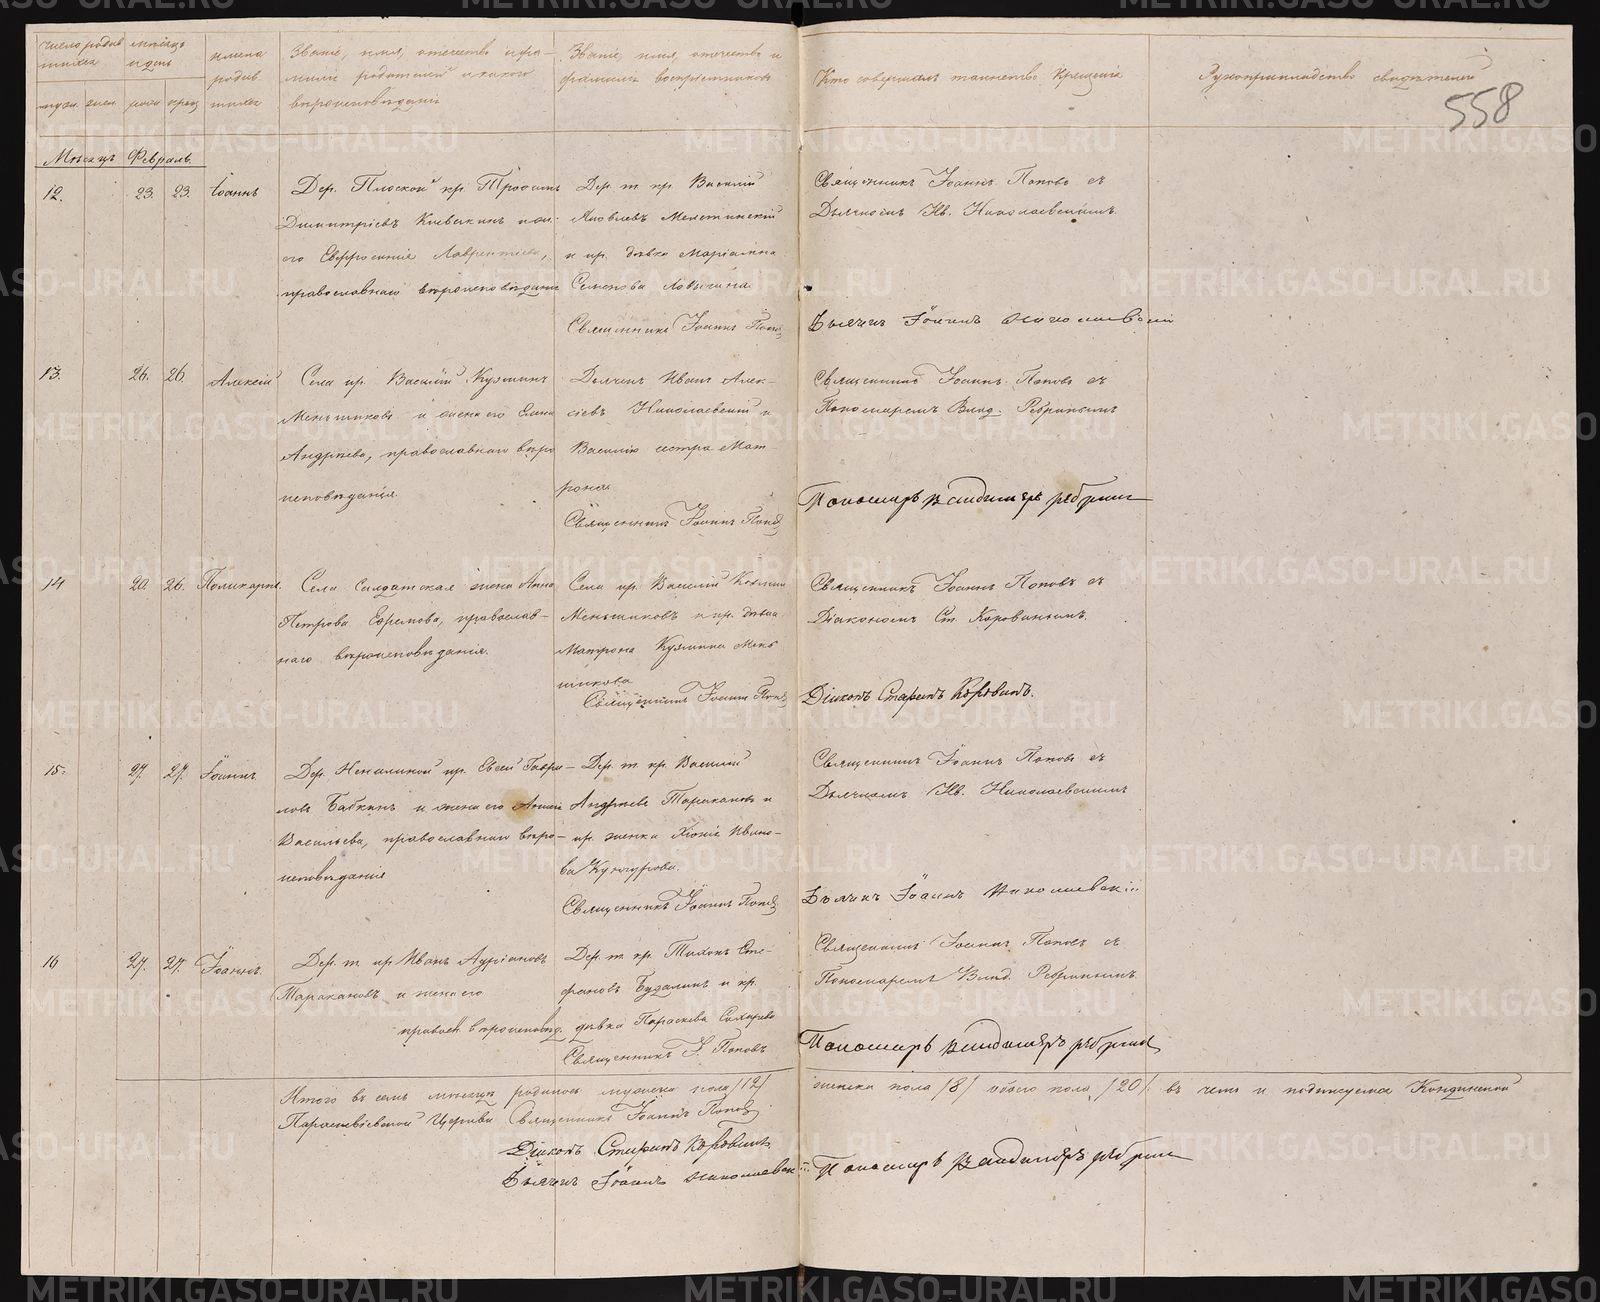 558
число родившихся
муж. жен.
месяцъ и день
рожд. крещ.
имена родившихся
Званіе, имя, отчество и фамилія родителей и какого вѣроисповѣданія
Званіе, имя, отчество и фамилія воспріемниковъ
Кто совершалъ таинство крещенія
Рукоприкладство свидѣтелей
Мѣсяцъ Февраль.
12. 23. 23. Іоаннъ
Дер. Плоской кр. Трофимъ
Димитріевъ и жена
его Евфросинія Лаврентіева,
православнаго вѣроисповѣданія
Дер. т. кр. Василій
Яковлевъ и
кр. дѣвка Маріамна
Семенова
Священникъ Іоаннъ Поповъ
Священникъ Іоаннъ Поповъ съ
Дьячкомъ Ив. Николаевскимъ.
Дьячекъ Іоаннъ Николаевскій
13. 26. 26. Алексій
Села кр. Василій Кузминъ
Меньшиковъ и жена его Елена
Андреева, православнаго вѣро
исповѣданія
Дьячекъ Иванъ Алек-
сіевъ Николаевскій и
Василія сестра Мат-
рона
Священникъ Іоаннъ Поповъ
Священникъ Іоаннъ Поповъ съ
Пономаремъ Влад. Ребринымъ
Пономарь Владимеръ Ребринъ
14 20. 26. Поликарпъ.
Села Солдатская жена Анна
Петрова Ефремова, православ-
наго вѣроисповѣданія.
Села кр. Василій Кузминъ
Меньшиковъ и кр. дѣвка
Матрона Кузмина Мень
шикова
Священникъ Іоаннъ Поповъ
Священникъ Іоаннъ Поповъ съ
Діакономъ Ст. Коровинымъ.
Діаконъ Стефанъ Коровинъ.
15. 27. 27. Іоаннъ
Дер. кр. Евсей Гаври-
ловъ Бабкинъ и жена его
Васильева, православнаго вѣро-
исповѣданія
Дер. т. кр. Василій
Андреевъ Таракановъ и
кр. женка Хіонія Ивано-
ва
Священникъ Іоаннъ Поповъ
Священникъ Іоаннъ Поповъ съ
Дьячкомъ Ив. Николаевскимъ
Дьячекъ Іоаннъ Николаевскій
16 27. 27. Іоаннъ.
Дер. т. кр. Иванъ
Таракановъ и жена его
правосл. вѣроисповѣд.
Дер. т. кр. Тихонъ Сте-
фановъ и кр.
дѣвка Параскева
Священникъ І. Поповъ
Священникъ Іоаннъ Поповъ съ
Пономаремъ Влад. Ребринымъ
Пономарь Владимеръ Ребринъ
Итого въ семъ мѣсяцѣ родилось мужеска пола /12/ женска пола /8/ обоего пола /20/. въ чемъ и подписуемся
Церкви Священникъ Іоаннъ Поповъ
Діаконъ Стефанъ Коровинъ
Дьячекъ Іоаннъ Николаевскій Пономарь Владимеръ Ребринъ
METRIKI.GASO-URAL.RU